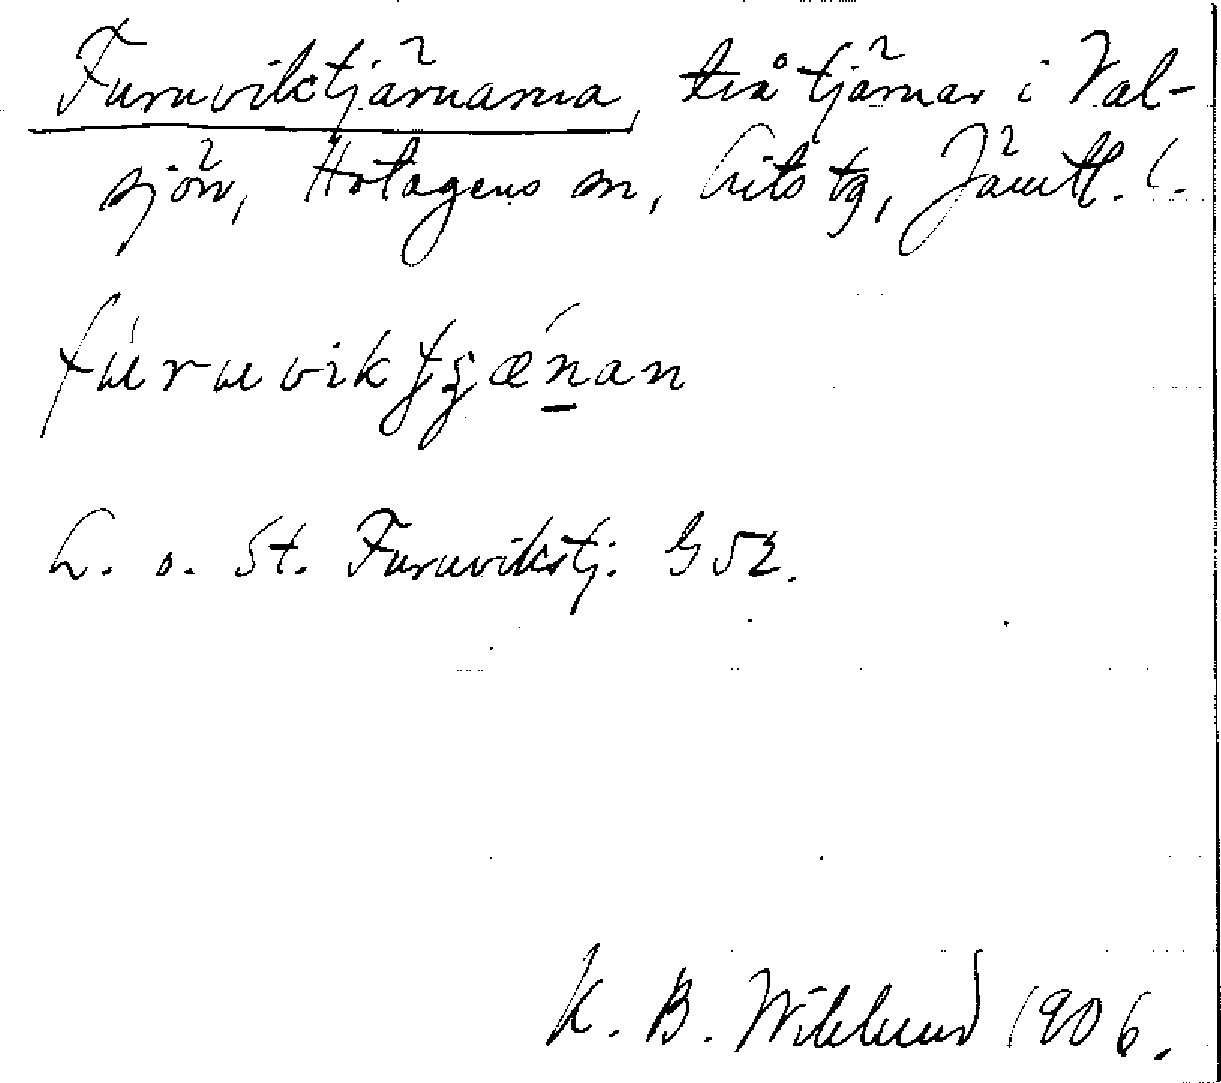 Furuviktjärnarna, två tjärnar i Val-
sjön, Hotagens sn, Lits tg, Jämtl. l.
fúruvik
L. o. St. Furuvikstj. G 52.
K. B. Wiklund 1906.